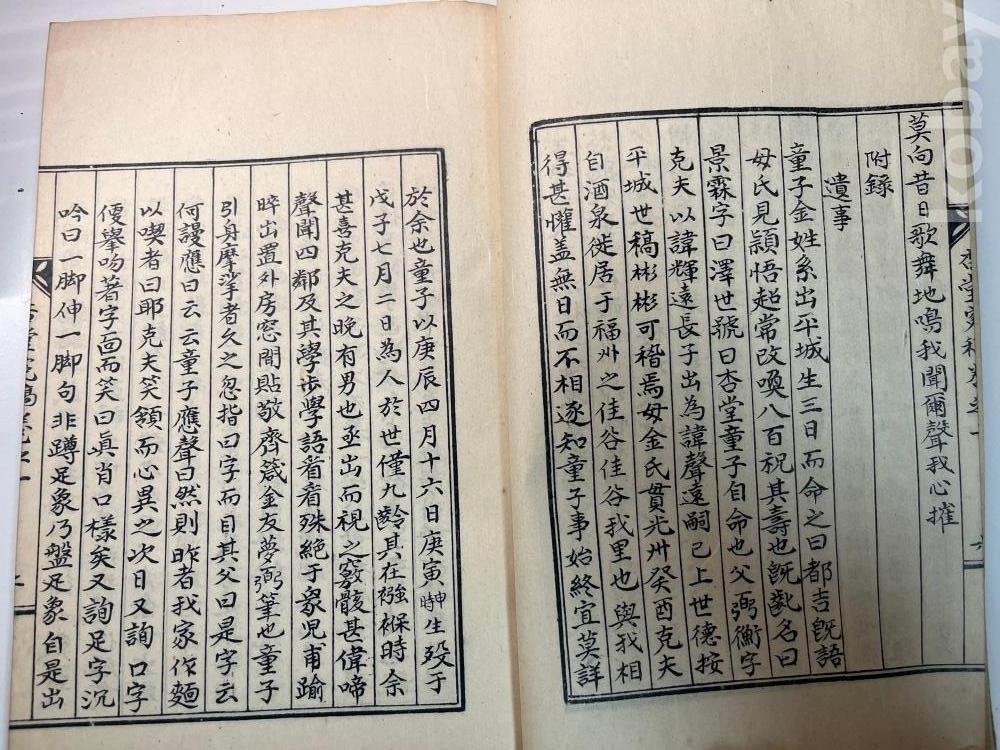 莫向昔日歌舞地鳴我聞爾聲我心摧
附錄
遺事
童子金姓系出平城生三日而命之曰都吉旣語
母氏見頴悟起常改喚八百祝其壽也旣齔名曰
景霖字曰澤世號曰杏堂童子自命也父弼衡字
克夫以諱輝遠長子出為諱聲遠嗣已上世德按
平城世稿彬彬可稽焉母金氏貫光州癸酉克夫
自酒泉徙居于福州之佳谷佳谷我里也與我相
得甚懽盖無日而不相逐知童子事始終宜莫詳
於余也童子以庚辰四月十六日庚寅申時生歿于
戊子七月二日為人於世僅九齡其在襁褓時余
甚喜克夫之晚有男也亟出而視之竅骸甚偉啼
聲聞四鄰及其學步學語看看殊絶于衆児甫踰
晬出置外房窓間貼敬齊箴金友夢弼筆也童子
引身摩挲者久之忽指曰字而目其父曰是字云
何謾應曰云云童子應聲曰然則昨者我家作麵
以喫者曰耶克夫笑頷而心異之次日又詢口字
便擧吻著字面而笑曰眞肖口樣矣又詢足字沉
吟曰一脚伸一脚句非蹲足象乃盤足象自是出
杏堂稿卷之一
kobay